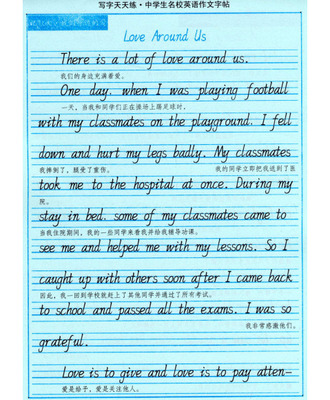 写字天天练·中学生名校英语作文字帖
Love Around Us
There is a lot of love around us.
我们的身边充满着爱。
One day. when I was playing football
一天，当我和同学们正在操场上踢足球时，
with my classmates on the playground. I fell
down and hurt my legs badly. My classmates
我摔倒了，腿受了重伤。 我的同学立即把我送到了医
took me to the hospital at once. During my
院。
stay in bed. some of my classmates came to
当我住院期间，我的一些同学来看我并给我辅导功课。
see me and helped me with my lessons. So I
caught up with others soon after I came back
因此，我一回到学校就赶上了其他同学并通过了所有考试。
to school and passed all the exams. I was so
我非常感激他们。
grateful.
Love is to give and love is to pay atten-
爱是给予，爱是关注他人。